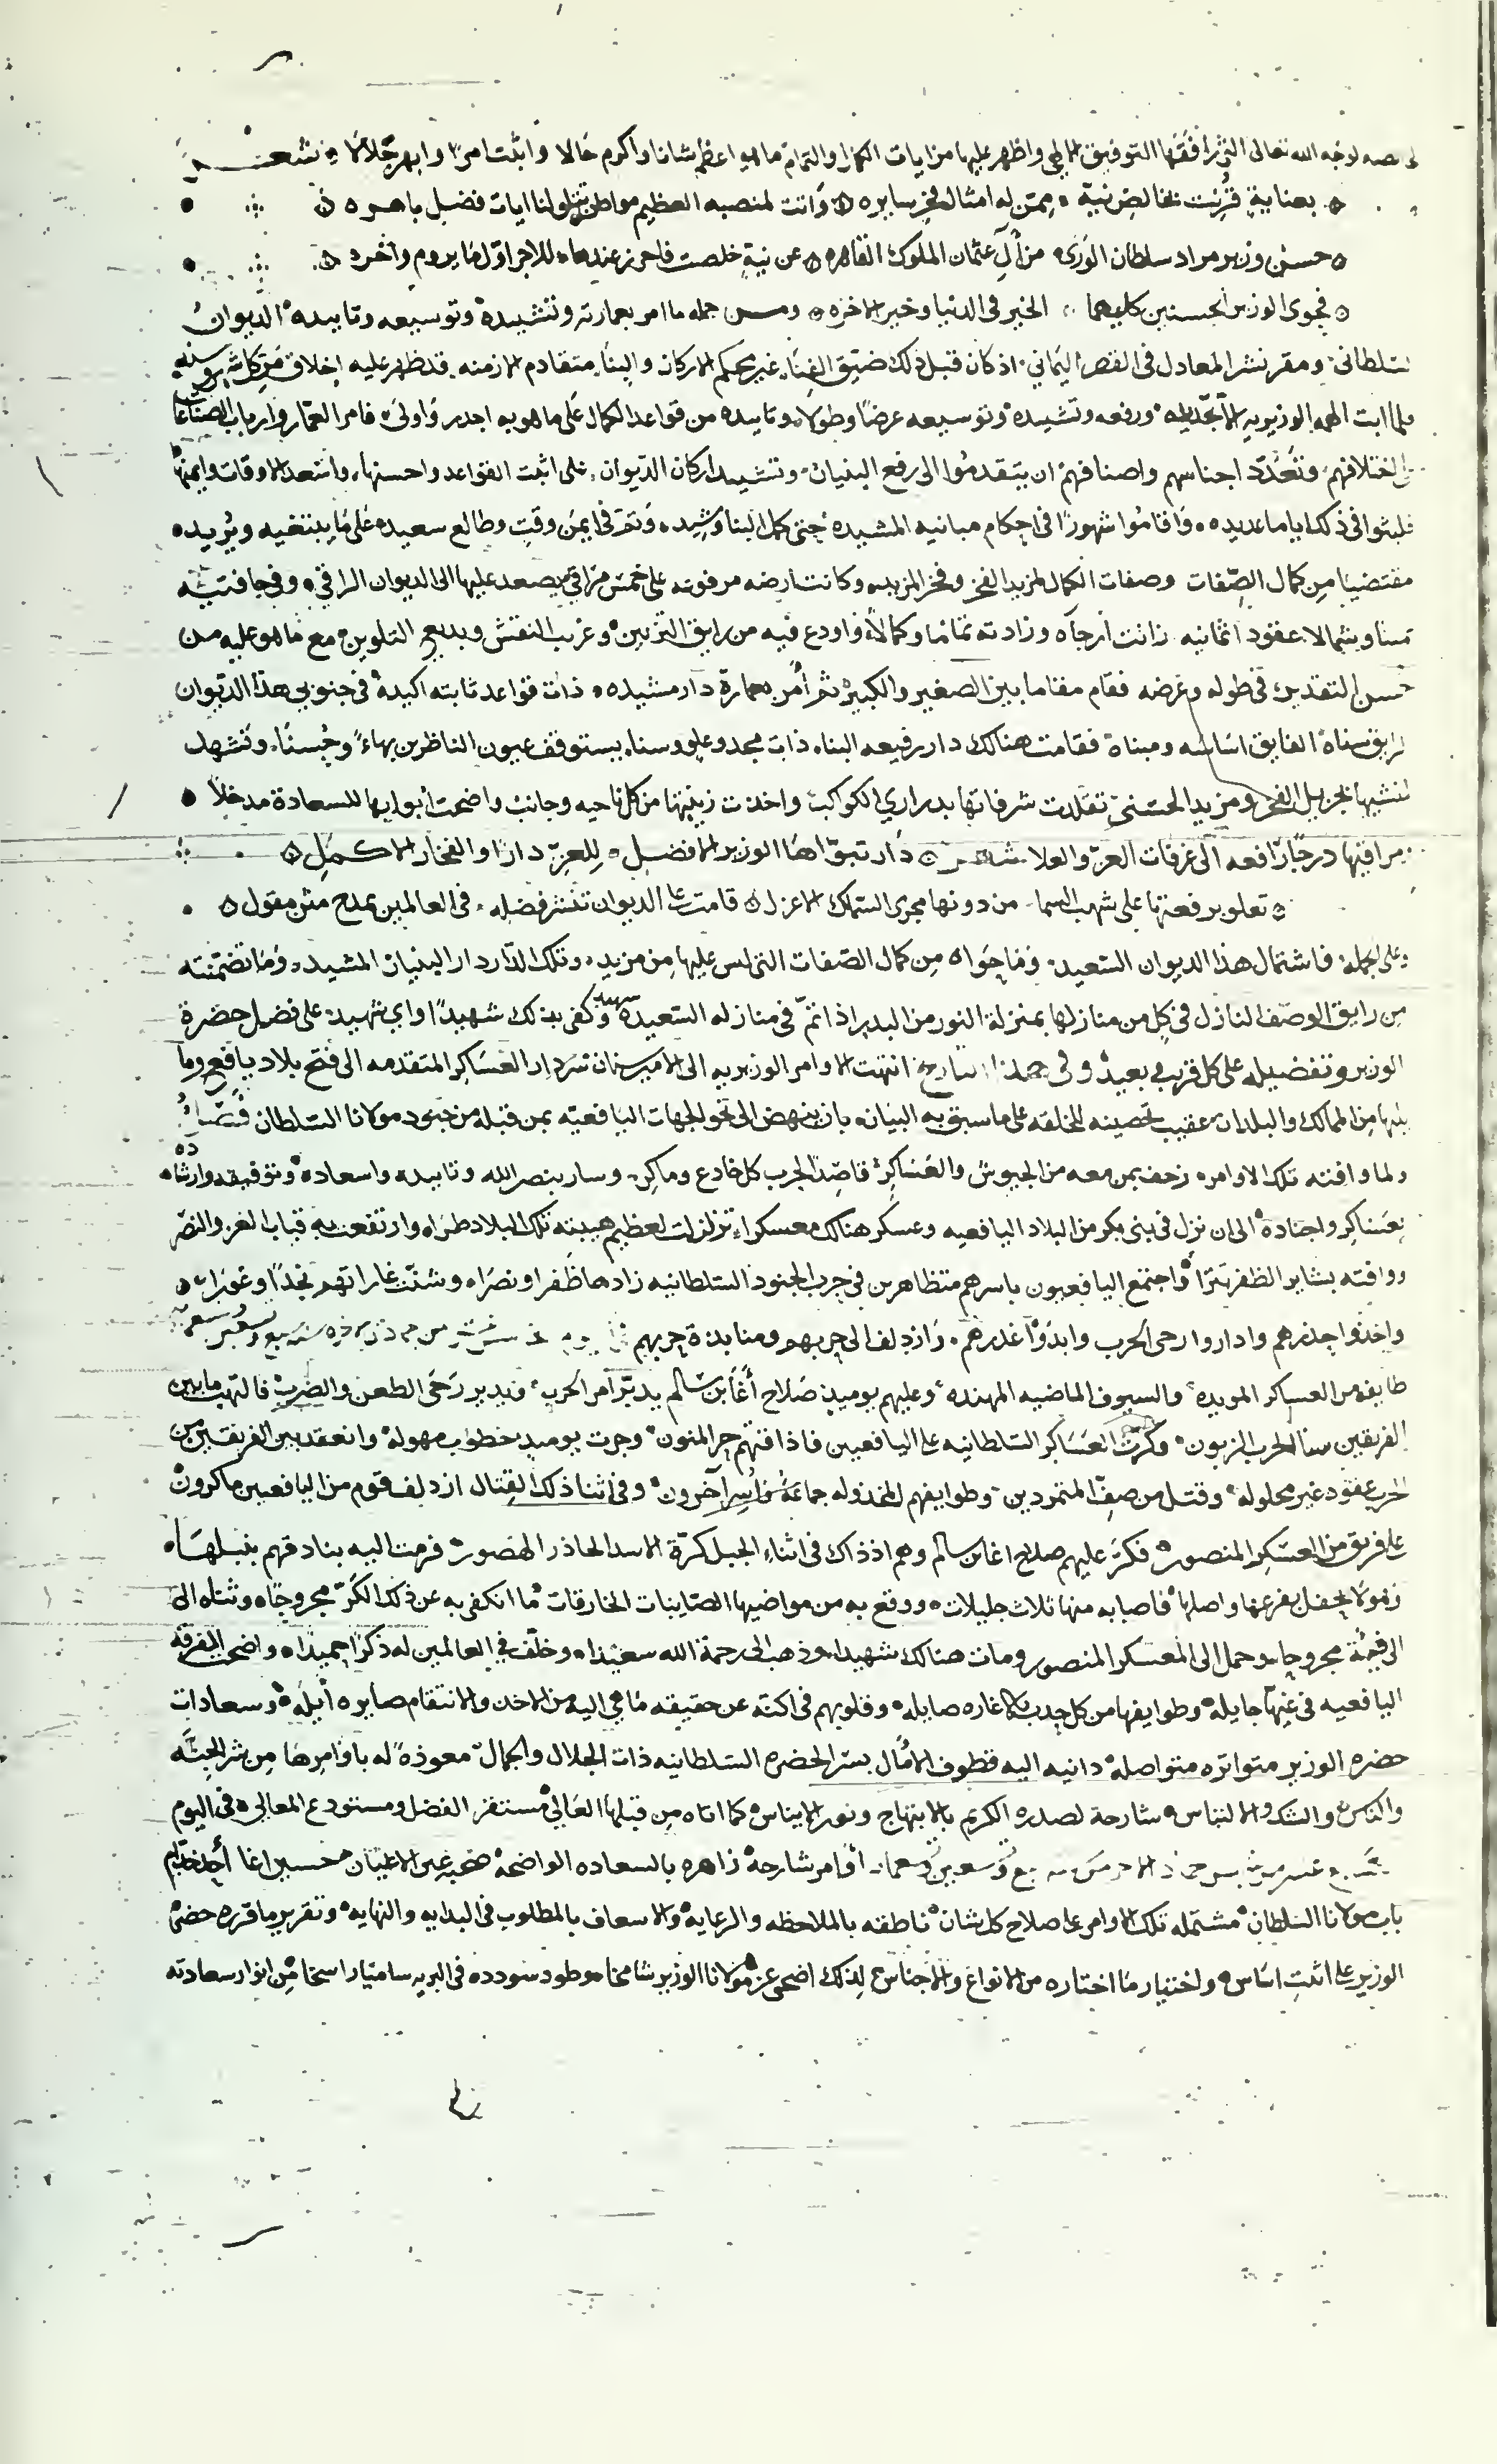 لوجه الله تعالى التي رافقها التوفيق الالهي واظهر عليها من ايات الكمال والتمام ما هو اعظم شانا واكرم حالا واثبت امرا وابهر جلالا شعر
بعناية قرنت بخالص نية ممن له امثال فخر سايره واتت لمنصبه العظيم مواطن تتلو لنا ايات فضل باهره
حسن وزير مراد سلطان الورى من آل عثمان الملوك القاهره عن نية خلصت فاحرز عندها للاجر اول ما يروم وآخره
فحوى الوزير الحسنيين كليهما الخير في الدنيا وخير الاخره ومن جملة ما امر بعمارته وتشييده وتوسيعه وتاييده الديوان
السلطاني ومقر نشر المعادل في القصر اليماني اذ كان قبل ذلك ضيق الفناء غير محكم الاركان والبناء متقادم الازمنه قد ظهر عليه اخلاق
فلما ابت الهمه الوزيريه الا تجديده ورفعه وتشييده وتوسيعه عرضا وطولا وتاييده من قواعد الكمال على ما هو به اجدر واولى فامر العمار وارباب الصناعات
على اختلافهم وتعدد اجناسهم واصنافهم ان يتقدموا الى رفع البنيان وتشييد اركان الديوان على اثبت القواعد واحسنها واسعد الاوقات وايمنها
فلبثوا في ذلك اياما عديده واقاموا شهورا في احكام مبانيه المشيده حتى كمل البنا وشيد وتم في ايمن وقت وطالع سعيد على ما يبتغيه ويريده
مقتضيا من كمال الصفات وصفات الكمال لمزيد الفخر وفخر المزيد وكانت ارضه مرفوعه على خمس مراقي يصعد عليها الى الديوان الراقي وفي حافتيه
يمينا وشمالا عقود اثمانيه زانت ارجاه وزادته تماما وكمالا واودع فيه من رايق التزيين وغريب النقش وبديع التلوين مع ما هو عليه من
حسن التقدير في طوله وعرضه فقام مقاما بين الصغير والكبير ثم أمر بعمارة دار مشيده ذات قواعد ثابته اكيده في جنوبي هذا الديوان
الرايق سناه الفايق اساسه ومبناه فقامت هنالك دار رفيعه البناء ذات مجد وعلو وسناء يستوقف عيون الناظرين بهاء وحسنا وتشهد
لمنشيها بجزيل الفخر ومزيد الحسنى تقلدت شرفاتها بدراري الكواكب واخذت زينتها من كل ناحيه وجانب واضحت ابوابها للسعادة مدخلا
ومراقيها درجا رافعه الى غرفات العز والعلا شعر دار تبواها الوزير الافضل للعز دارا والفخار الاكمل
تعلو برفعتها على شهب السما من دونها مجرى السماك الاعزل قامت على الديوان تنشر فضله في العالمين بمدح مثن مقول
وعلى الجمله فاشتمال هذا الديوان السعيد وما حواه من كمال الصفات التي ليس عليها من مزيد وتلك الدار دار البنيان المشيد وما تضمنته
من رايق الوصف النازل في كل من منازلها بمنزلة النور من البدر اذا تم في منازله السعيده وكفى بذلك شهيدا واي شهيد على فضل حضرة
الوزير وتفضيله على كل قريب وبعيد وفي هذا التاريخ انتهت الاوامر الوزيريه الى الامير سنان سردار العساكر المتقدمه الى فتح بلاد يافع وما
يليها من الممالك والبلدان عقيب تحصينه للخلقه على ما سبق به البيان بان ينهض الى نحو الجهات اليافعيه بمن قبله من جنود مولانا السلطان
ولما وافته تلك الاوامر زحف بمن معه من الجيوش والعساكر قاصدا لحرب كل خادع وماكر وسار بنصر الله وتاييده واسعاده وتوفيقه وارشاده
بعساكر واجناده الى ان نزل في بني بكر من البلاد اليافعيه وعسكر هنالك معسكرا تزلزلت لعظيم هيبته تلك البلاد طرا وارتفعت به قباب العز والنصر
ووافته بشاير الظفر تترا واجتمع اليافعيون باسرهم متظاهرين في حرب الجنود السلطانيه زادها ظفرا ونصرا وشنت غاراتهم نجدا وغورا
واخذوا حذرهم واداروا رحى الحرب وابدوا غدرهم وازدلف الى حربهم ومنابذة حزبهم
طايفه من العساكر المويده والسيوف الماضيه المهنده وعليهم يوميذ صلاح أغا بن سالم يدبر امر الحرب ويدير رحى الطعن والضرب فالتهب ما بين
الفريقين سنا الحرب الزبون وكرت العساكر السلطانيه على اليافعيين فاذاقتهم حر المنون وجرت يوميذ خطوب مهوله وانعقد بين الفريقين من
الحرب عقود غير محلوله وقتل من صف المتمردين وطوايفهم المخذوله جماعة واسر آخرون وفي اثنا ذلك القتال ازدلف قوم من اليافعيين ماكرون
على فريق من العسكر المنصور فكر عليهم صلاح اغا بن سالم وهم اذ ذاك في اثناء الجبل كرة الاسد الحاذر الهصور فرمت اليه بنادقهم بنبلها
ولم يحفل بفرعها واصلها فاصابه منها ثلاث جليلات ووقع به من مواضيها الصايبات الخارقات ما انكفى به عن ذلك الكر مجروحا وثناه الى
الى مجروحا وحمل الى المعسكر المنصور ومات هنالك شهيدا وذهب الى رحمة الله سعيدا وخلف في العالمين له ذكرا حميدا واضحت الفرقه
اليافعيه في غيها جايله وطوايفها من كل حدب للغاره صايله وقلوبهم في اكنه عن حقيقه ما هي اليه من الاخذ والانتقام صايره وسعادات
حضرة الوزير متواتره متواصله دانيه اليه قطوف الامال بسر الحضره السلطانيه ذات الجلال والجمال معوذة له باوامرها من شر الجنه
والناس والشك والالتباس شارحة لصدره الكريم بالابتهاج ونور الايناس كما اتاه من قبلها العالي مستقر الفضل ومستودع المعالي في اليوم
أوامر شارحة زاهره بالسعاده الواضحه صحبه عين الاعيان حسين اغا أحد خدام
باب مولانا السلطان مشتمله تلك الاوامر على صلاح كل شان ناطقه بالملاحظه والرعايه والاسعاف بالمطلوب في البدايه والنهايه وتقرير ما قرره حضرة
الوزير على اثبت اساس واختيار ما اختاره من الانواع والاجناس لذلك اضحى عز مولانا الوزير شامخا وطود سودده في البريه ساميا راسخا من انوار سعادته